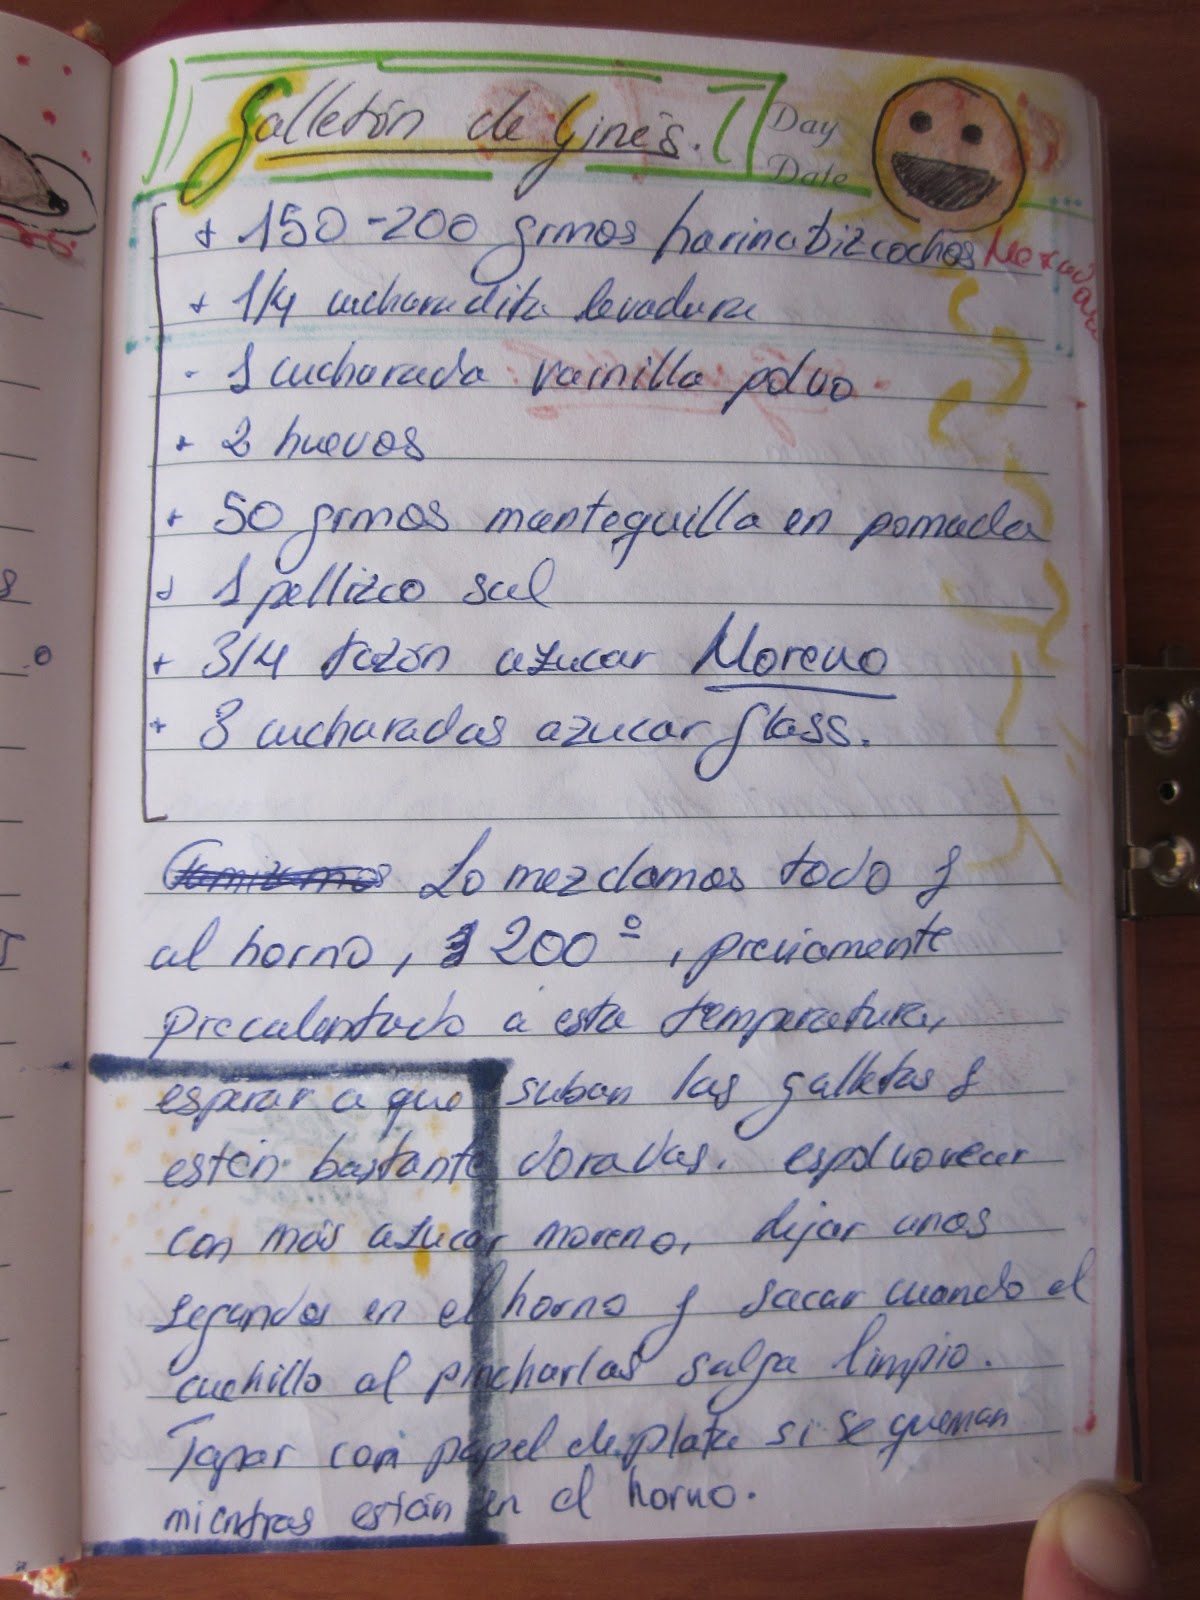 Galletón de Ginés.
Day
Date
+ 150-200 grmos harina bizcochos
+ 1/4 cucharadita levadura
- 1 cucharada vainilla polvo
+ 2 huevos
+ 50 grmos mantequilla en pomada
+ 1 pellizco sal
+ 3/4 tazón azucar Moreno
+ 3 cucharadas azucar glass.
Lo mezclamos todo y
al horno, 200º, previamente
precalentado a esta temperatura,
esperar a que suban las galletas y
estén bastante doradas. espolvorear
con más azucar moreno, dejar unos
segundos en el horno y sacar cuando el
cuchillo al pincharlas salga limpio.
Tapar con papel de plata si se queman
mientras están en el horno.